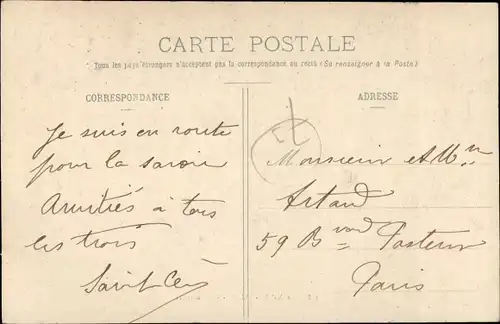 CARTE POSTALE
Tous les pays étrangers n'acceptent pas la correspondance au recto (Se renseigner à la Poste)
CORRESPONDANCE
Je suis en route
pour la savoie
Amitiés à tous
les trois
ADRESSE
Monsieur et Mme
Artaud
59 Bvard Pasteur
Paris